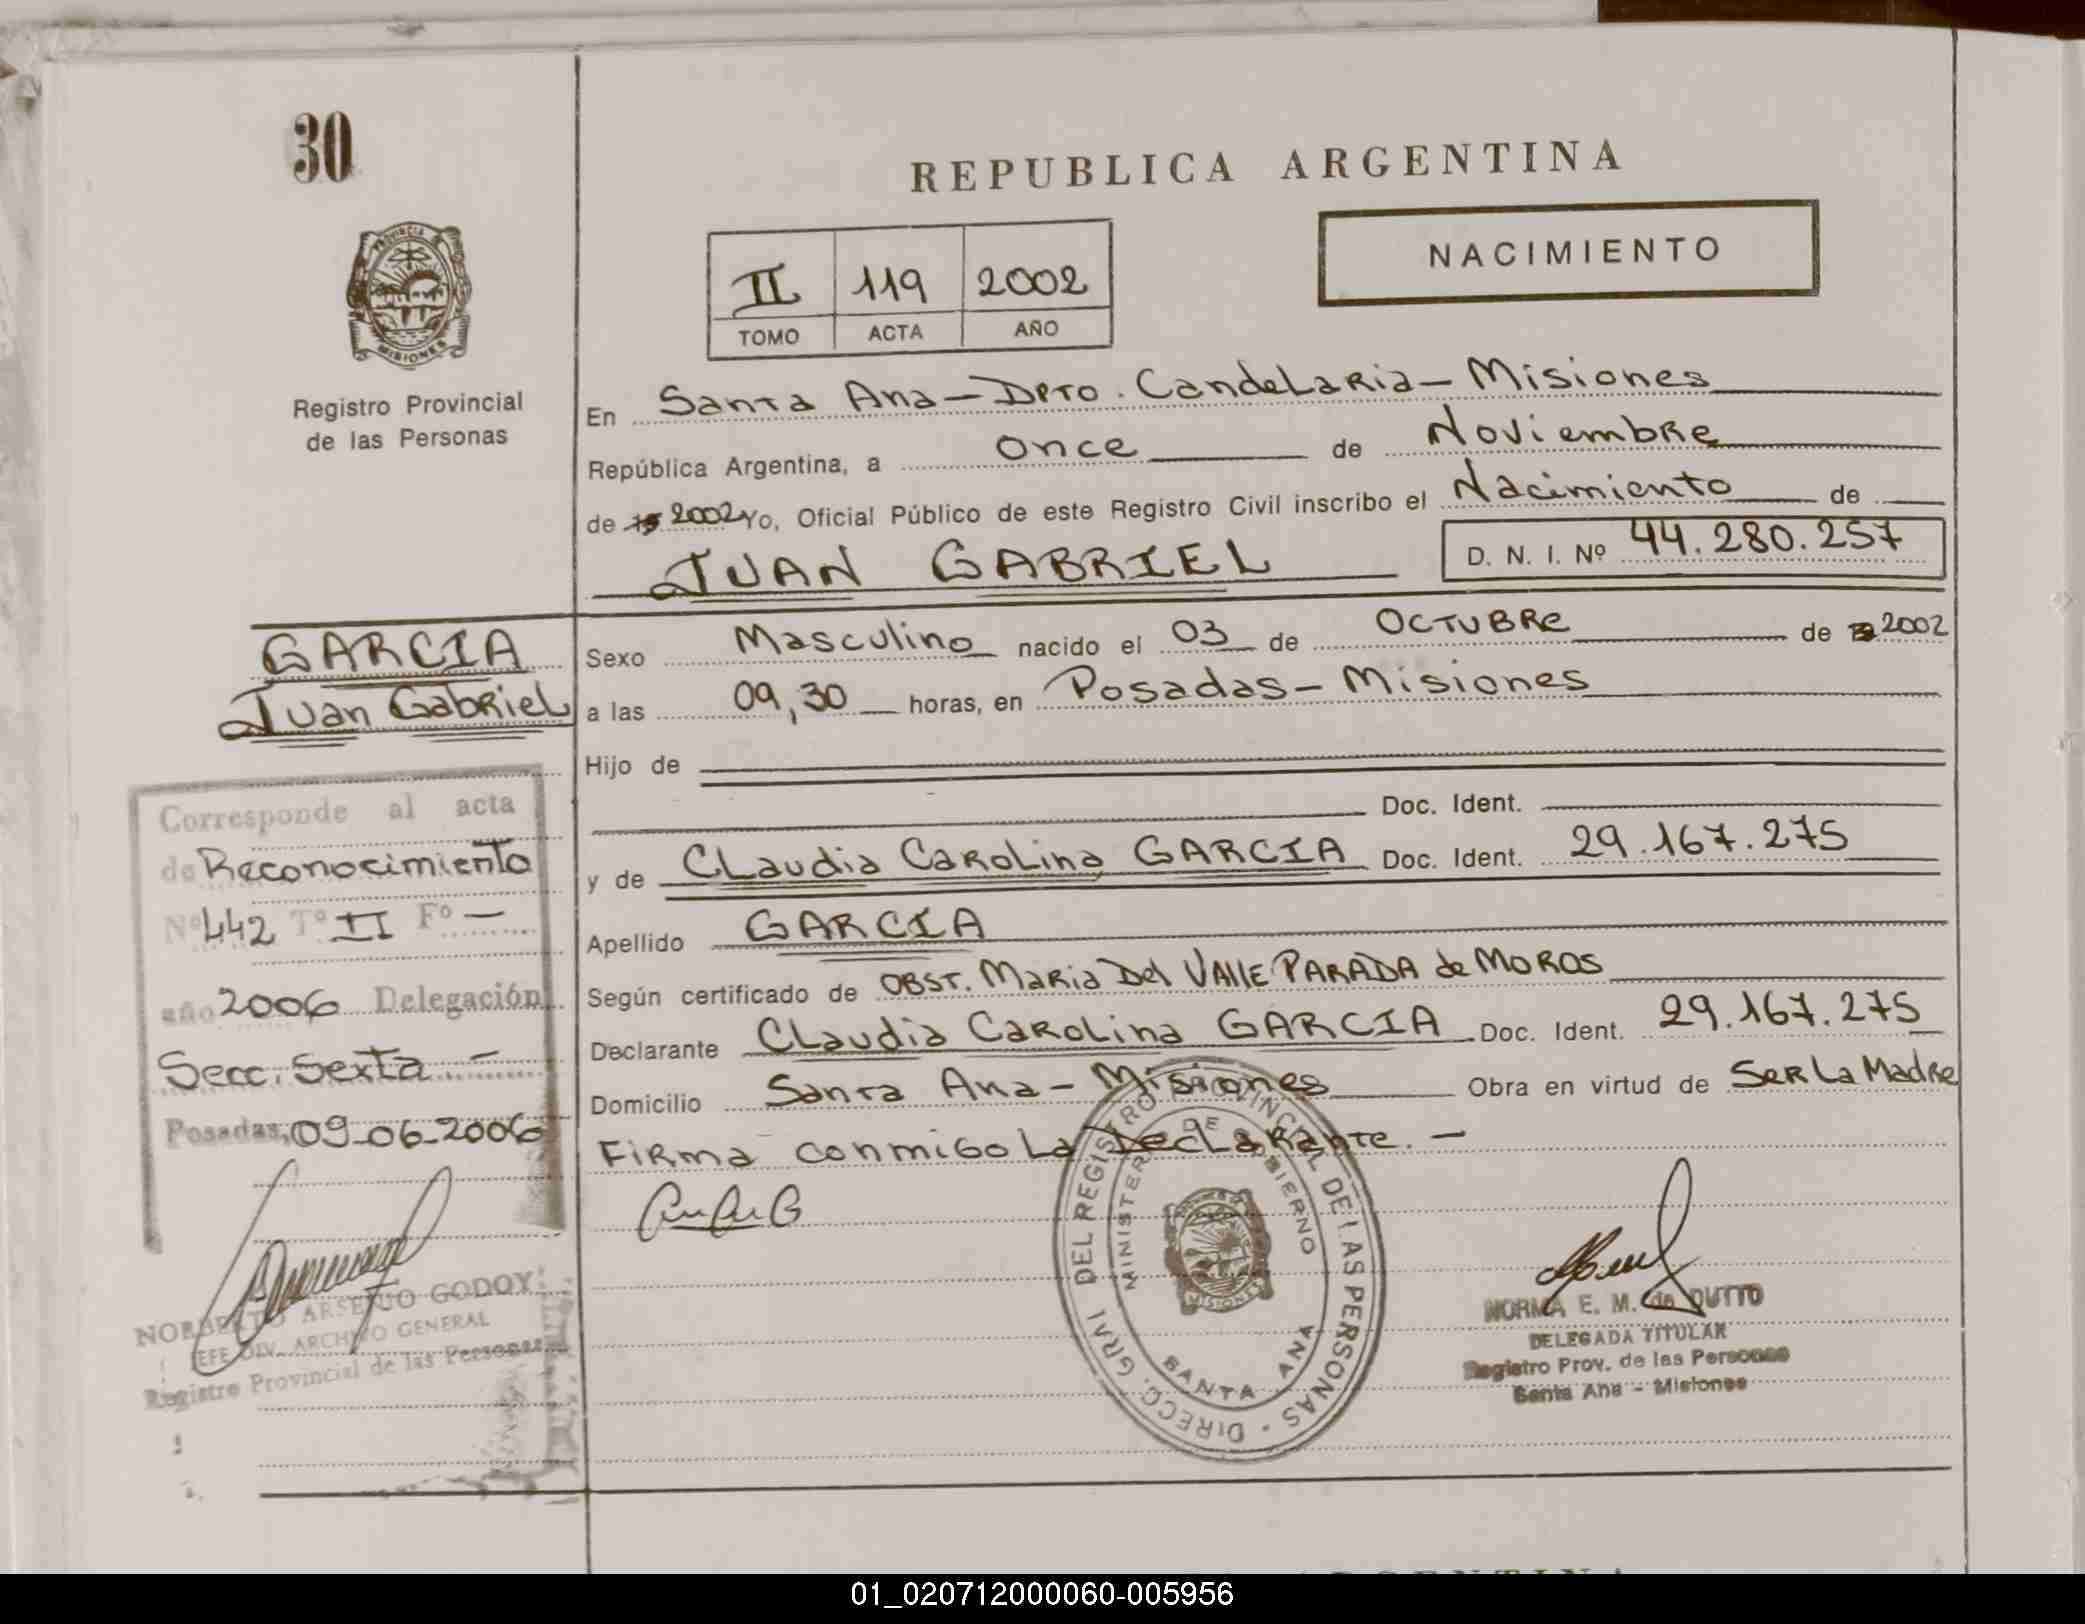 30
REPUBLICA ARGENTINA
NACIMIENTO
II 119 2002
TOMO ACTA AÑO
PROVINCIA
MISIONES
Registro Provincial
de las Personas
En Santa Ana - Dpto. Candelaria - Misiones
República Argentina, a once de Noviembre
de 19 2002 Yo, Oficial Público de este Registro Civil inscribo el Nacimiento de
JUAN GABRIEL D. N. I. Nº 44.280.257
GARCIA
Juan Gabriel
Sexo Masculino nacido el 03 de OCTUBRE de 2002
a las 09,30 horas, en Posadas - Misiones
Hijo de
Doc. Ident.
y de Claudia Carolina GARCIA Doc. Ident. 29.167.275
Apellido GARCIA
Según certificado de OBST. Maria Del VAllE PARADA de MOROS
Declarante Claudia Carolina GARCIA Doc. Ident. 29.167.275
Domicilio Santa Ana - Misiones Obra en virtud de Ser La Madre
Firma conmigo La Declarante. -
Corresponde al acta
de Reconocimiento
Nº 442 Tº II Fº -
año 2006 Delegación
Secc. Sexta -
Posadas, 09-06-2006
NORBERTO ARSENIO GODOY
JEFE DIV. ARCHIVO GENERAL
Registro Provincial de las Personas
DIRECC. GRAL DEL REGISTRO PROVINCIAL DE LAS PERSONAS
MINISTERIO DE GOBIERNO
MISIONES
SANTA ANA
NORMA E. M. de DUTTO
DELEGADA TITULAR
Registro Prov. de las Personas
Santa Ana - Misiones
01_020712000060-005956